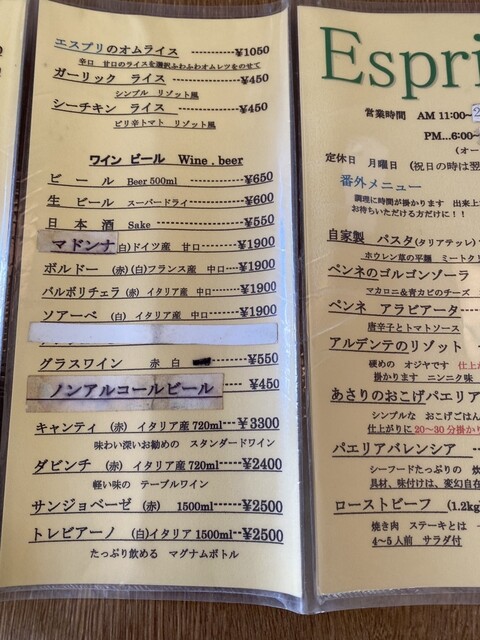 エスプリのオムライス ----------¥1050
辛口 甘口のライスを選択ふわふわオムレツをのせて
ガーリック ライス --------¥450
シンプル リゾット風
シーチキン ライス --------¥450
ピリ辛トマト リゾット風
ワイン ビール Wine . beer
ビール Beer 500ml --------¥650
生 ビール スーパードライ ------¥600
日本酒 Sake ---------¥550
マドンナ(白)ドイツ産 甘口--¥1900
ボルドー (赤)(白)フランス産 中口---¥1900
バルポリチェラ (赤) イタリア産 中口---¥1900
ソアーベ (白) イタリア産 中口----¥1900
グラスワイン 赤 白 ---¥550
ノンアルコールビール ---¥450
キャンティ (赤) イタリア産 720ml---¥3300
味わい深いお勧めの スタンダードワイン
ダビンチ (赤) イタリア産 720ml----¥2400
軽い味の テーブルワイン
サンジョベーゼ (赤) 1500ml----¥2500
トレビアーノ (白)イタリア 1500ml--¥2500
たっぷり飲める マグナムボトル
Espri
営業時間 AM 11:00~2
PM...6:00~
(オー
定休日 月曜日 (祝日の時は翌
番外メニュー
調理に時間が掛かります 出来上
お待ちいただける方だけに!!
自家製 パスタ(タリアテッレ)
ホウレン草の平麺 ミートク
ペンネのゴルゴンゾーラ
マカロニ&青カビのチーズ
ペンネ アラビアータ------
唐辛子とトマトソース
アルデンテのリゾット --
硬めの オジヤです 仕上が
掛かります ニンニク味
あさりのおこげパエリア
シンプルな おこげごはん
仕上がりに 20~30分掛かり
パエリアバレンシア ----
シーフードたっぷりの 炊
具材、味付けは、変幻自在
ローストビーフ (1.2kg)
焼き肉 ステーキとは 一
4~5人前 サラダ付